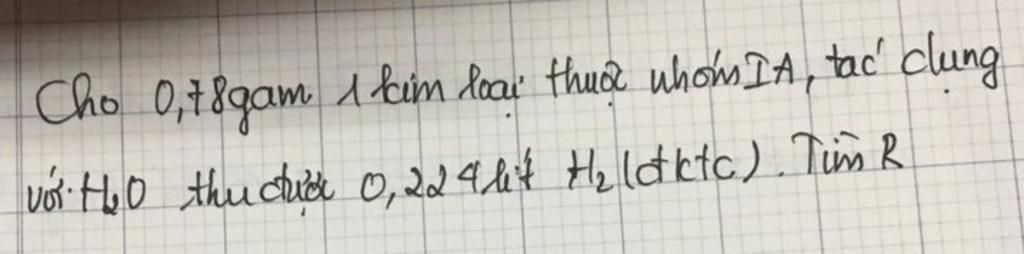 Cho 0,78gam 1 kim loại thuộc nhóm IA, tác dụng
với H₂O thu được 0,224 lít H₂ (đktc). Tìm R